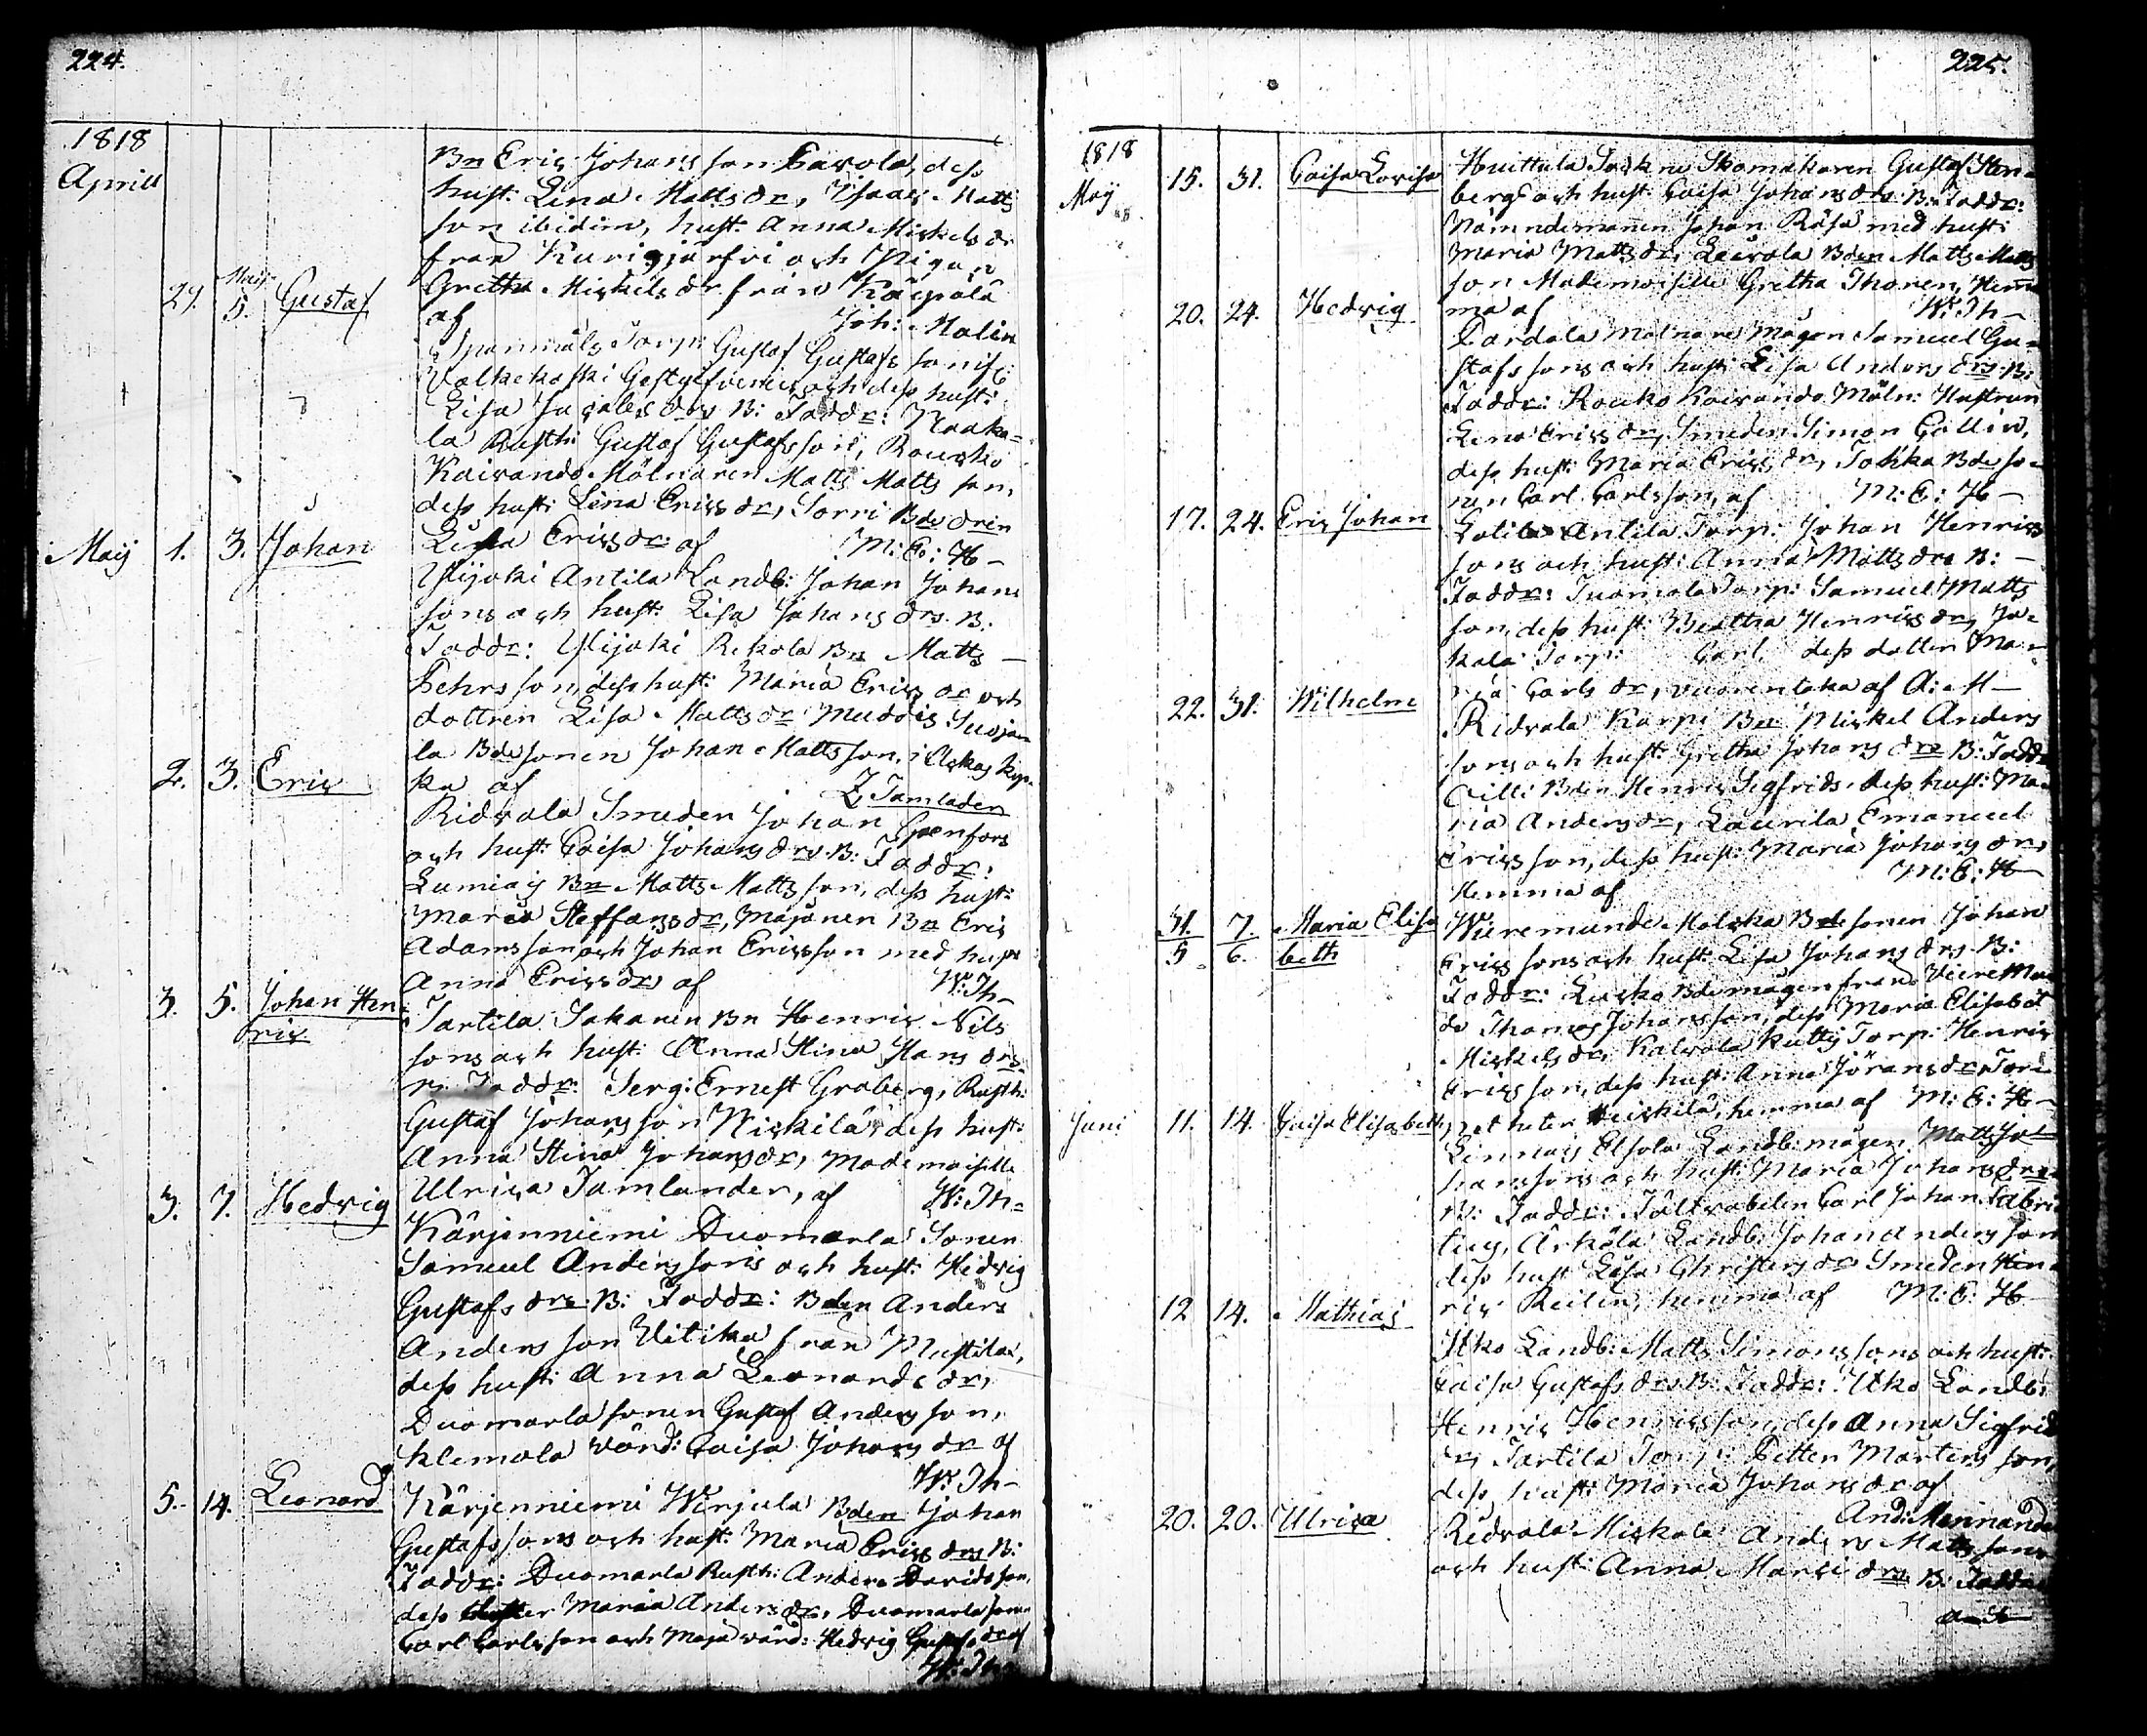 224.
1818
Aprill
Bn Eric Johansson Carola, dess
hust: Lina Matts dr, Isaac Matts
son ibidim, hust: Anna Mickels dr
från Kurisjärfvi och Pigan
Gretha Mickels dr från Käspälä
af Joh: Malin
27. May 5. Gustaf
Torp: Gustaf Gustafs sons
Valkekoski och dess hust:
Lisa drs B: Faddr: Naaka=
la Rusth: Gustaf Gustafsson, Rouko
Kaivando Mölnaren Matts Matts son,
dess hust: Lina Erics dr, Sorri Bde drn
Lisa Erics dr af M: E: H-
May 1. 3. Johan
Ylijoki Antila Landb: Johan Johans
sons och hust: Lisa Johans drs B.
Faddr: Ylijoki Rekola Bn Matts
Pehrsson, dess hust: Maria Erics dr och
dottren Lisa Matts dr
la Bdesonen Johan Mattsson,
ka af Z Tamlader
2. 3. Eric
Ridvala Smeden Johan Grenfors
och hust: Caisa Johans drs B: Faddr:
Lumiais Bn Matts Mattsson, dess hust:
Maria Steffans dr, Majanen Bn Eric
Adamsson och Johan Ericsson med hust
Anna Erics dr, af W: Th-
3. 5. Johan Hen
ric
Tartila Sakanen Bn Henric Nils
sons och hust: Anna Stina Hans drs.
B. Faddr: Serg: Ernest Groberg, Rusth:
Gustaf Johansson Niskilä dess hust:
Anna Stina Johans dr, Mademoiselle
Ulrica Tamlander, af W: Th=
3. 7. Hedvig
Kärjenniemi Duomarla Sonen
Samuel Anderssons och hust: Hedvig
Gustafs drs B: Faddr: Bden Anders
Andersson Uitika från Mustila,
dess hust: Anna Leonards dr,
Duomarla sonen Gustaf Andersson,
Klemola värd: Caisa Johans dr af
W: Th-
5. 14. Leonard
Kärjenniemi Wirjula Bden Johan
Gustafssons och hust: Maria Erics drs B:
Faddr: Duomarla Rusth: Anders Davidsson,
dess Maria Anders dr, Duomarla sonen
Carl Carlsson och Maja värd: Hedvig Gustafs dr af
W: Th
225.
1818
May 15. 31. Caisa Lovisa
Huittula Sockne Skomakaren Gustaf Sten=
bergs och hust: Caisa Johans drs B: Faddr:
Nämndemannen Johan Räfsä med hust:
Maria Matts dr, Laurola Bden Matts Matts
son Mademoiselle Gretha Thoren, Hem
ma af W: Th-
20. 24. Hedvig
Pardala Mölnare Mågen Samuel Gu=
stafssons och hust: Lisa Anders drs B:
Faddr: Rouko Kaivando Möln: Hustrun
Lena Erics dr, Smeden Simon Gallin,
dess hust: Maria Erics dr, Tokka Bde so=
nen Carl Carlsson, af M: E: H-
17. 24. Eric Johan
Lotila Antila Torp: Johan Henrics
sons och hust: Anna Matts drs B: -
Faddr: Tuomola Torp: Samuel Matts
son, dess hust: Beatha Henrics dr, Ja=
kala Torp: Carl dess dotter Ma=
ria Carls dr, af A: M-
22. 31. Wilhelm
Ridvala Karpi Bn Mickel Anders
sons och hust: Gretha Johans drs B: Faddr
Cilli Bden Henric Sigfrids, dess hust: Ma=
ria Anders dr, Laurila Emanuel
Ericsson, dess hust: Maria Johans dr,
Hemma af M: E: H-
31. 7. Maria Elisa
5 6. beth
Wieremunde Bde sonen Johan
Erics sons och hust: Lisa Johans drs B:
Faddr: Bdemågen från Wierremun
de Thomas Johansson, dess Maria Elisabet
Mickels dr, Kalvola Torp: Henric
Ericsson, dess hust: Anna Jörans dr,
hemma af M: E: H-
Juni 11. 14. Caisa Elisabeth
Lennais Elsola Landb: mågen Matts Jo=
hanssons och hust: Maria Johans drs
B: Faddr: Fältvabelen Carl Johan Fabri
tius, Ärkälä Landb: Johan Andersson
dess hust Lisa Christers dr Smeden Hen=
ric Reilin, hemma af M: E: H
12 14. Mathias
Uko Landb: Matts Simonssons och hust:
Caisa Gustafs drs B: Faddr: Uko Landb:
Henric Henricsson, dess Anna Sigfrids
dr, Tartila Torp: Petter Mårtensson,
dess hust: Maria Johans dr af
And: Mennander
20. 20. Ulrica
Ridvala Mickola Anders Matts sons
och hust: Anna Marci drs B: Faddr